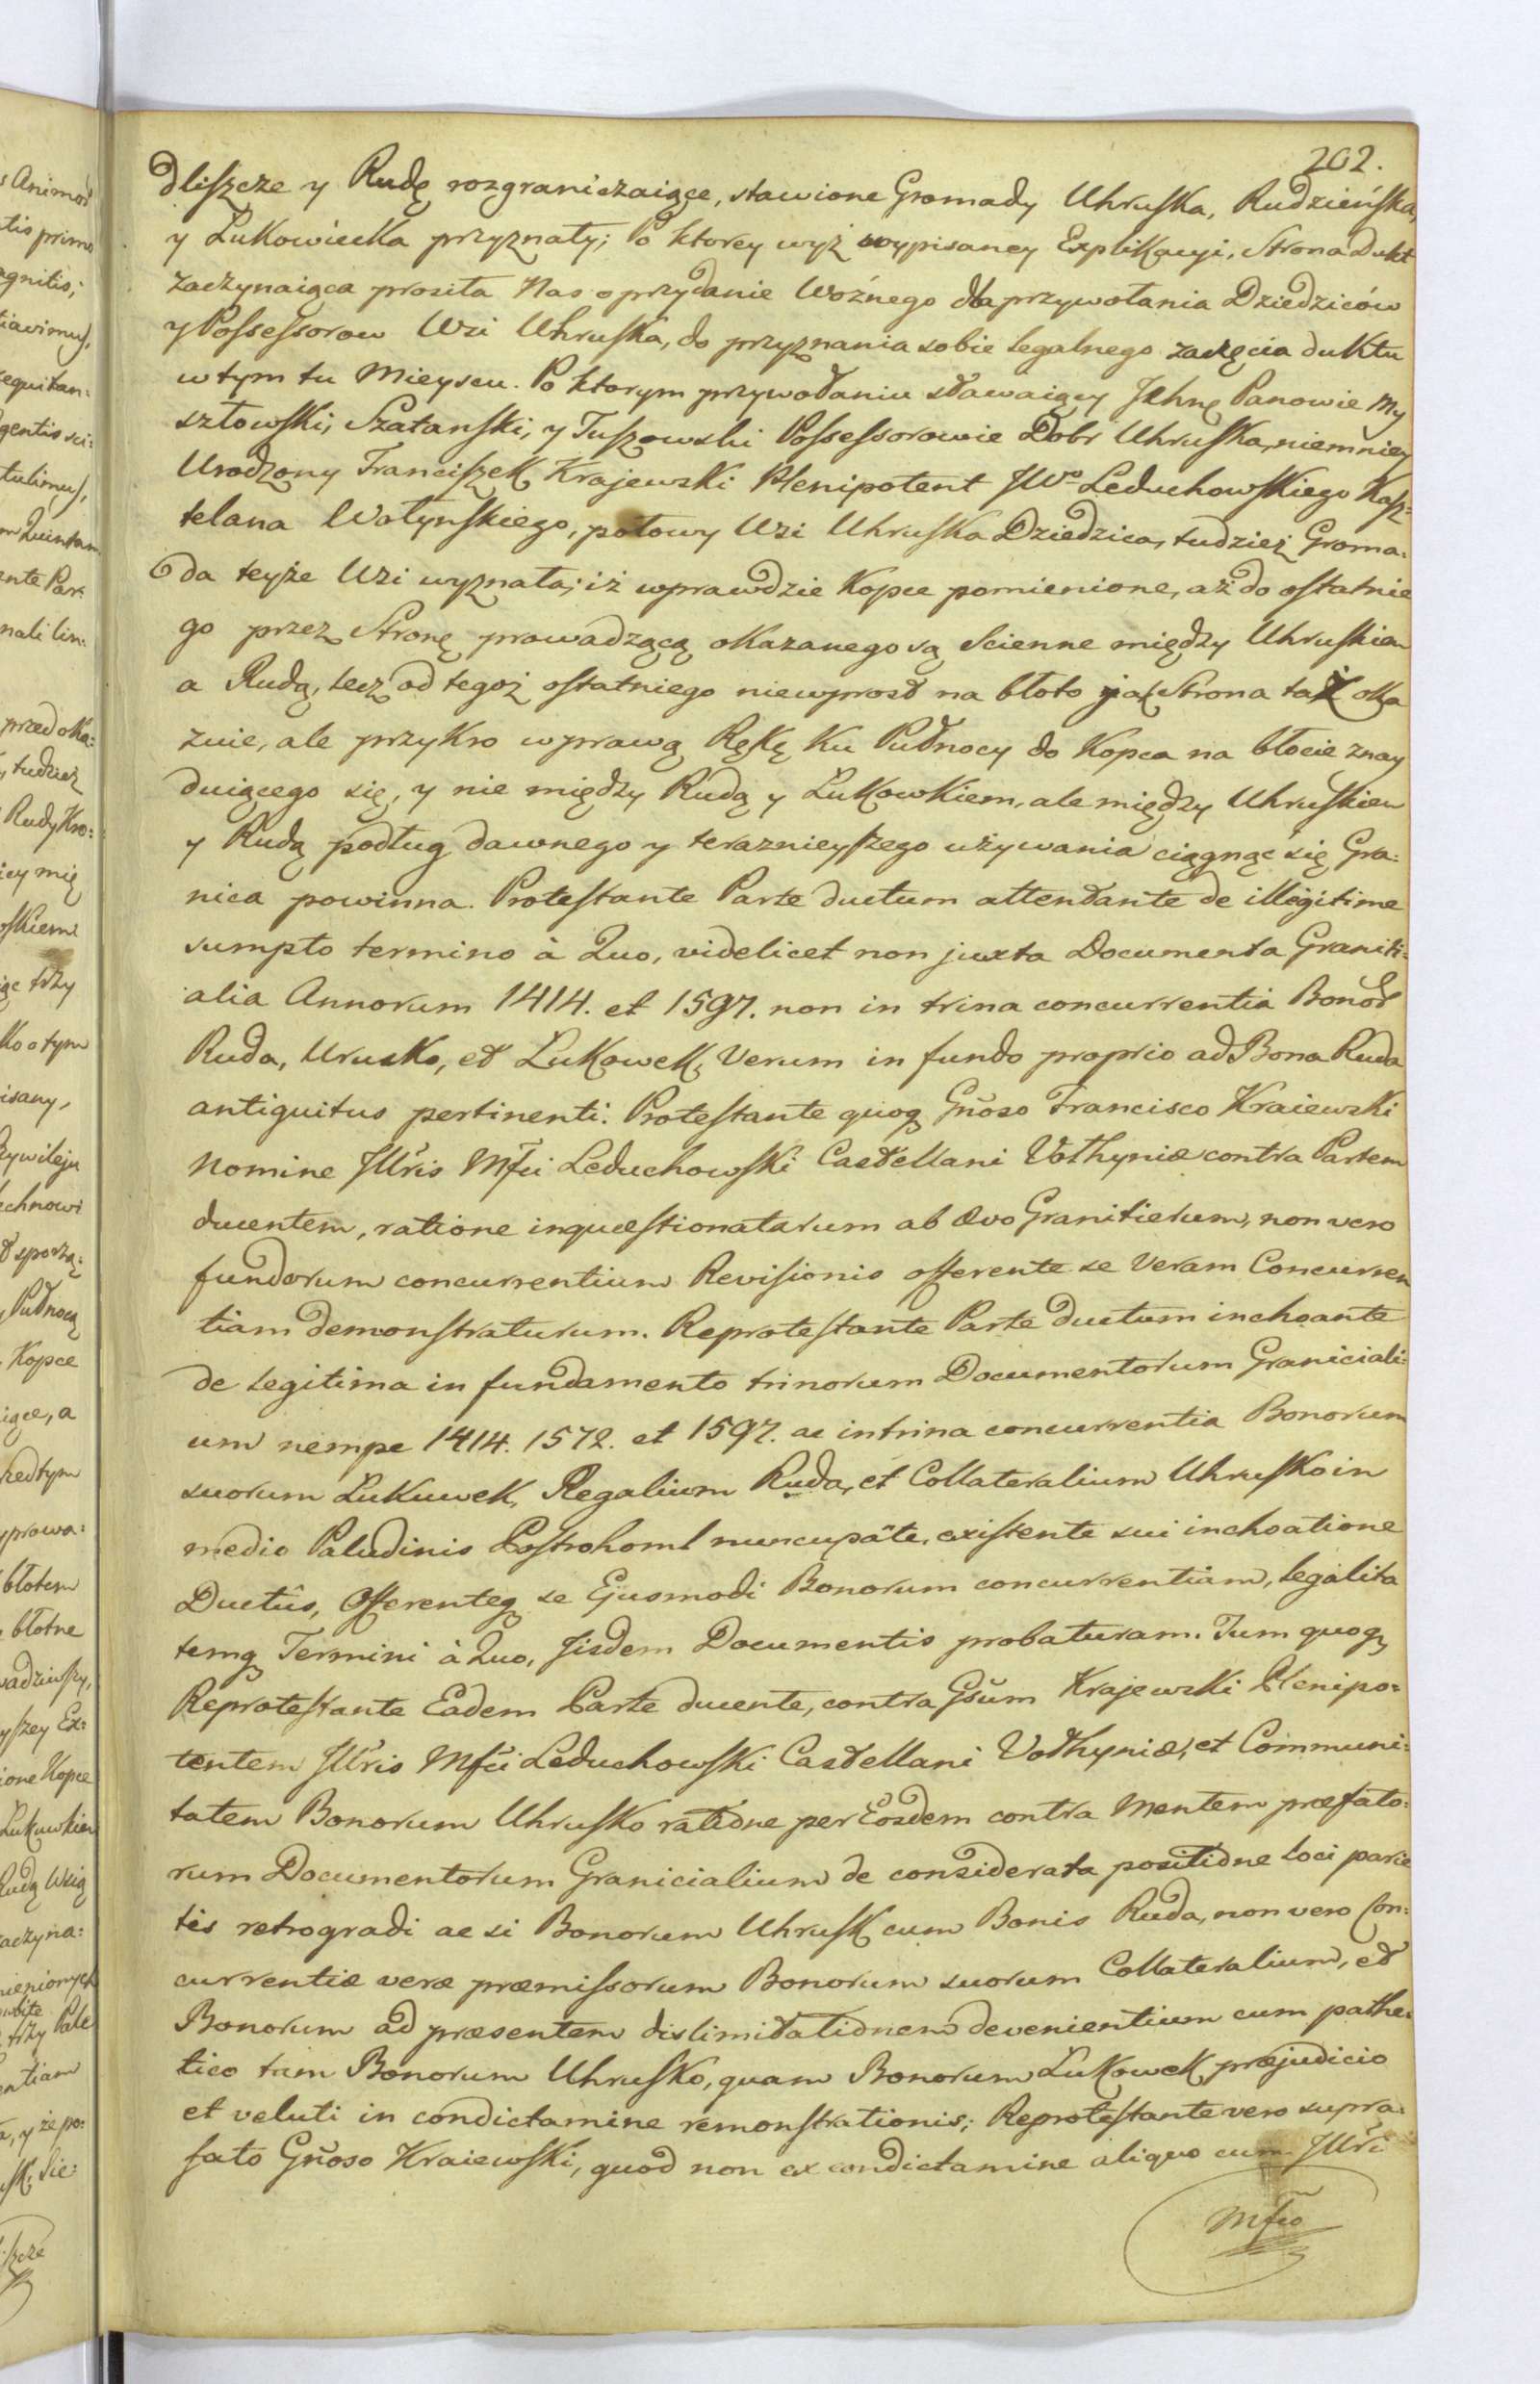 202.
dliszcze y Rudę rozgraniczaiące, stawione Gromady Uhruska, Rudzieńska,
y Łukowiecka przyznały; Po ktorey wyż wypisaney Explikacyi, Strona Dukt
zaczynaiąca prosiła Nas o przydanie Woźnego dla przywołania Dziedziców
y Possessorow Wsi Uhruska, do przyznania sobie legalnego zaczęcia duktu
w tym tu Mieyscu. Po ktorym przywołaniu stawaiący Jchmę Panowie My
szłowski, Szatanski, y Tuszowski Possessorowie Dobr Uhruska, niemniey
Urodzony Franciszek Krajewski Plenipotent JWo Leduchowskiego Kasz=
telana Wołynskiego, połowy Wsi Uhruska Dziedzica, tudzież Groma=
da teyże Wsi wyznała; iż wprawdzie Kopce pomienione, aż do ostatnie
go przez Stronę prowadzącą okazanego są Scienne między Uhruskiem
a Rudą, lecz od tegoż ostatniego niewprost na błoto jak Strona taż oka
zuie, ale przykro w prawą Rękę ku Pułnocy do Kopca na błocie znay
duiącego się, y nie między Rudą y Łukowkiem, ale między Uhruskiem
y Rudą podług dawnego y teraznieyszego używania ciągnąć się Gra=
nica powinna. Protestante Parte ductum attentante de illegitime
sumpto termino à Quo, videlicet non juxta Documenta Graniti=
alia Annorum 1414. et 1597. non in trina concurrentia Bonor
Ruda, Urusko, et Łukowek, Verum in fundo proprio ad Bona Ruda
antiquitus pertinenti. Protestante quoq Gnoso Francisco Kraiewski
Nomine JMris Mfci Leduchowski Castellani Vołhyniæ contra Partem
ducentem, ratione inquæstionatarum ab ævo Granitierum, non vero
fundorum concurrentium Revisionis offerente se Veram Concurren
tiam demonstraturum. Reprotestante Parte ductum inchoante
de legitima in fundamento trinorum Documentorum Graniciali=
um nempe 1414. 1572. et 1597. ac in trina concurrentia Bonorum
suorum Łukuwek, Regalium Ruda, et Collateralium Uhrusko in
medio Paludinis Postrohoml nuncupatæ, existente sui inchoatione
Ductûs, Offerenteq se Ejusmodi Bonorum concurrentiam, legalita
temq Termini à Quo, Jisdem Documentis probaturam. Tum quoq
Reprotestante Eadem Parte ducente, contra Gsum Krajewski Plenipo=
tentem JMris Mfci Leduchowski Castellani Vołhyniæ, et Communi=
tatem Bonorum Uhrusko ratione per Eosdem contra Mentem præfato=
rum Documentorum Granicialium de considerata positione loci parie
tis retrogradi ac si Bonorum Uhrusk cum Bonis Ruda, non vero Con=
currentiæ veræ præmissorum Bonorum suorum Collateralium, et
Bonorum ad præsentem dislimitationem devenientium cum pathe=
tico tam Bonorum Uhrusko, quam Bonorum Łukowek præjudicio
et veluti in condictamine remonstrationis; Reprotestante vero supra=
fato Gnoso Kraiewski, quod non ex condictamine aliquo cum JMri
Mfco